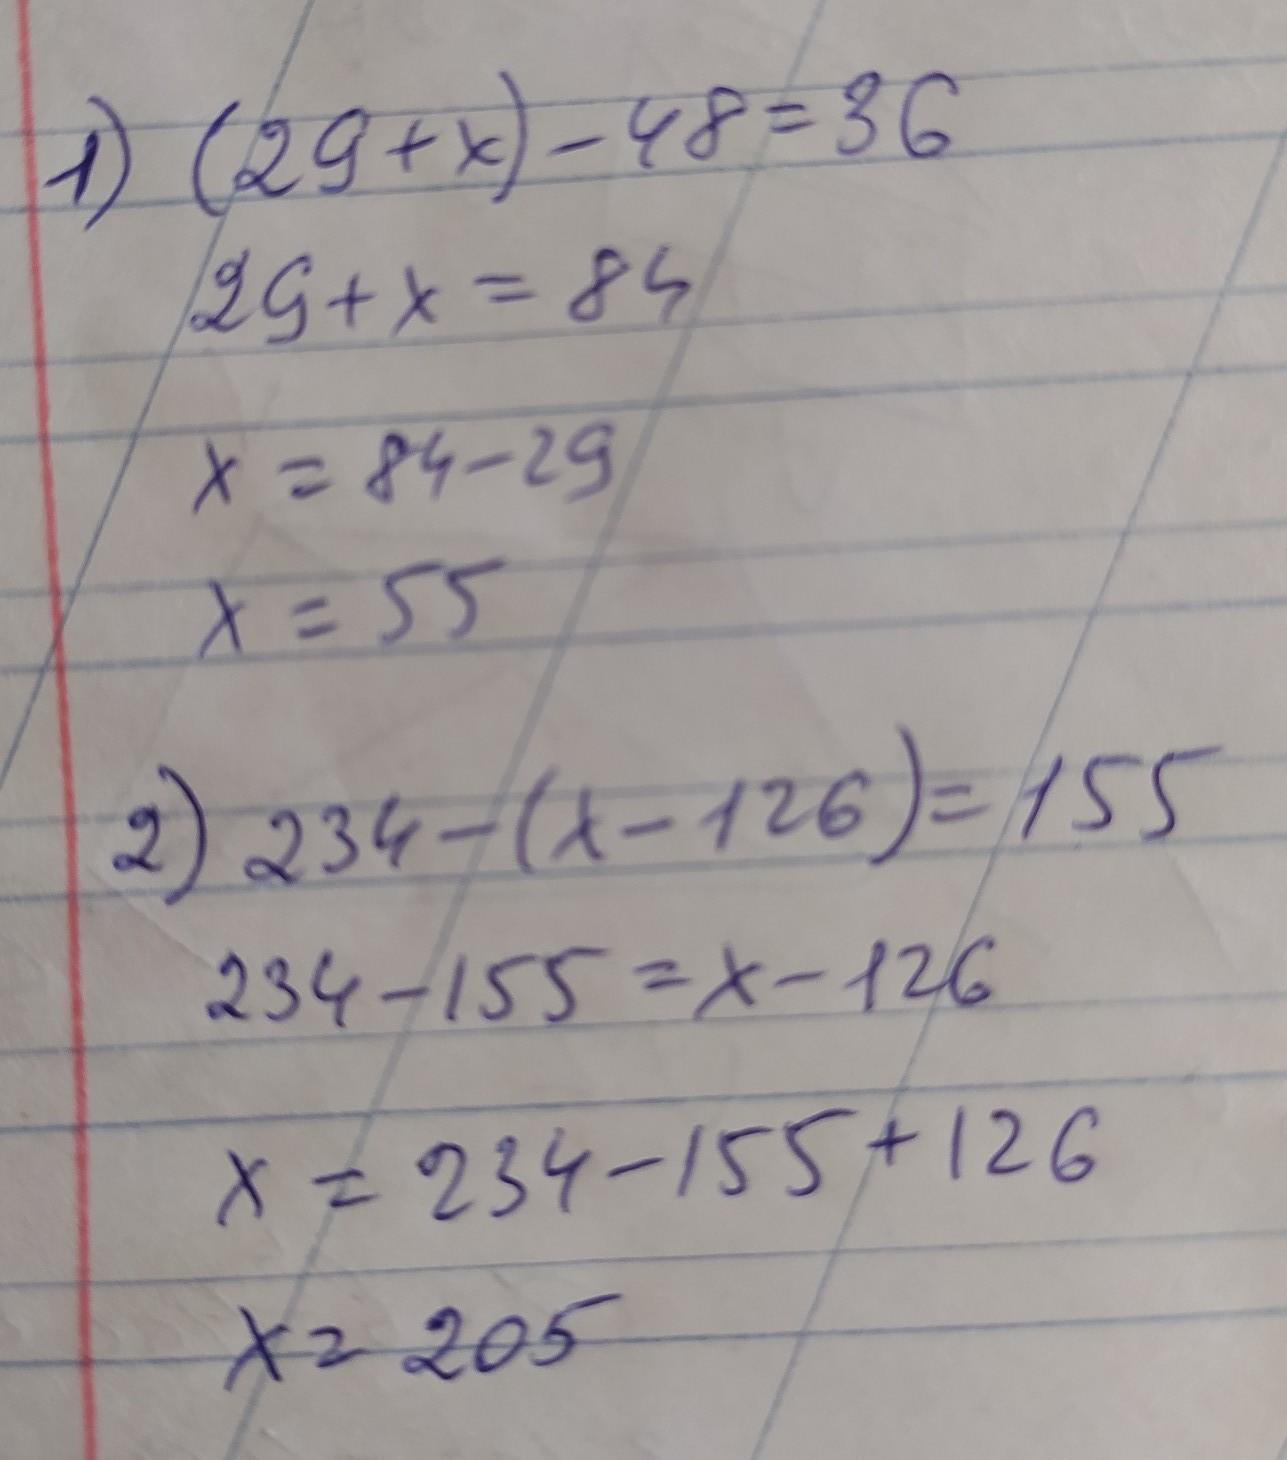 1) (29+x)-48=36
29+x=84
x=84-29
x=55
2) 234-(x-126)=155
234-155=x-126
x=234-155+126
x=205